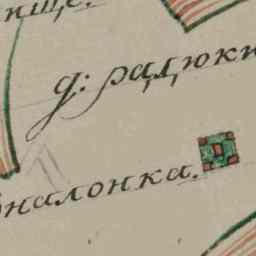 ище.
д: радюки
налонка.